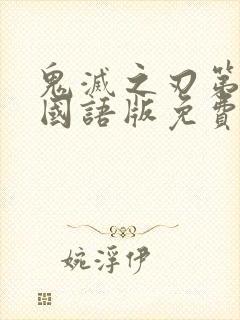 鬼滅之刃第
國語版免費
婉浮伊